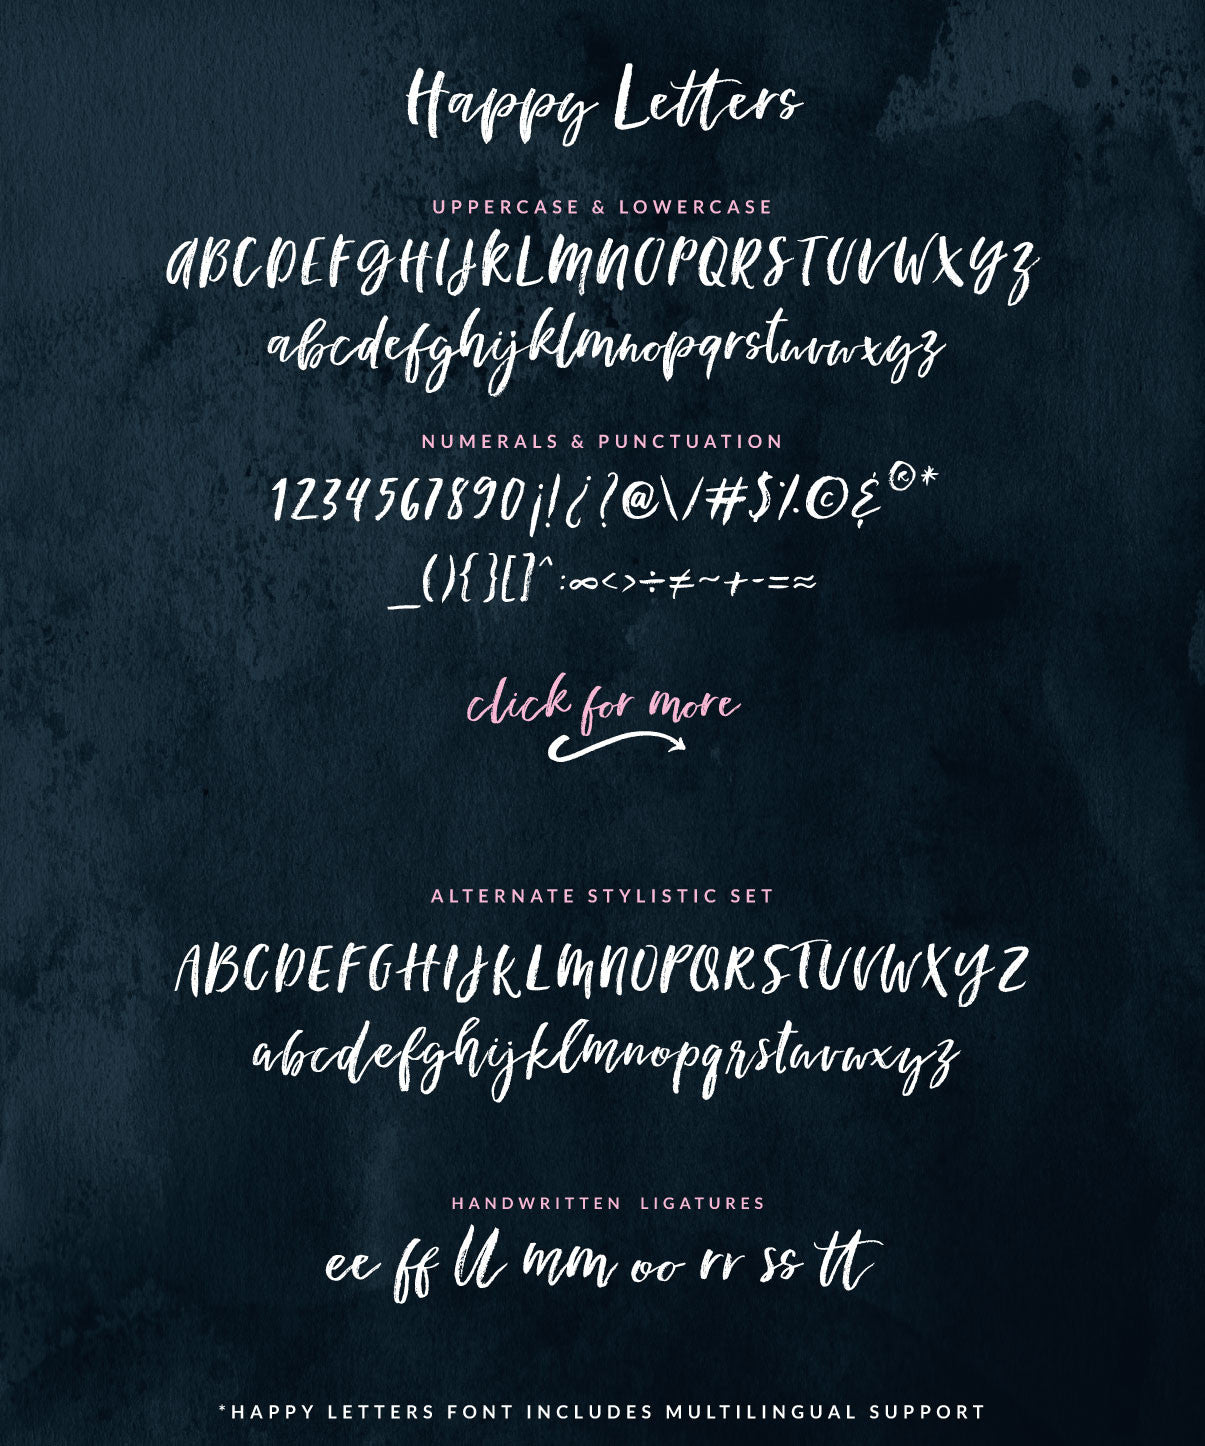 Happy Letters
UPPERCASE & LOWERCASE
ABCDEFGHIJKLMNOPQRSTUVWXYZ
abcdefghijklmnopqrstuvwxyz
NUMERALS & PUNCTUATION
1234567890¡!¿?@\/#$%©&®*
_(){}[]^:∞<>÷≠~+-=≈
click for more
ALTERNATE STYLISTIC SET
ABCDEFGHIJKLMNOPQRSTUVWXYZ
abcdefghijklmnopqrstuvwxyz
HANDWRITTEN LIGATURES
ee ff ll mm oo rr ss tt
*HAPPY LETTERS FONT INCLUDES MULTILINGUAL SUPPORT